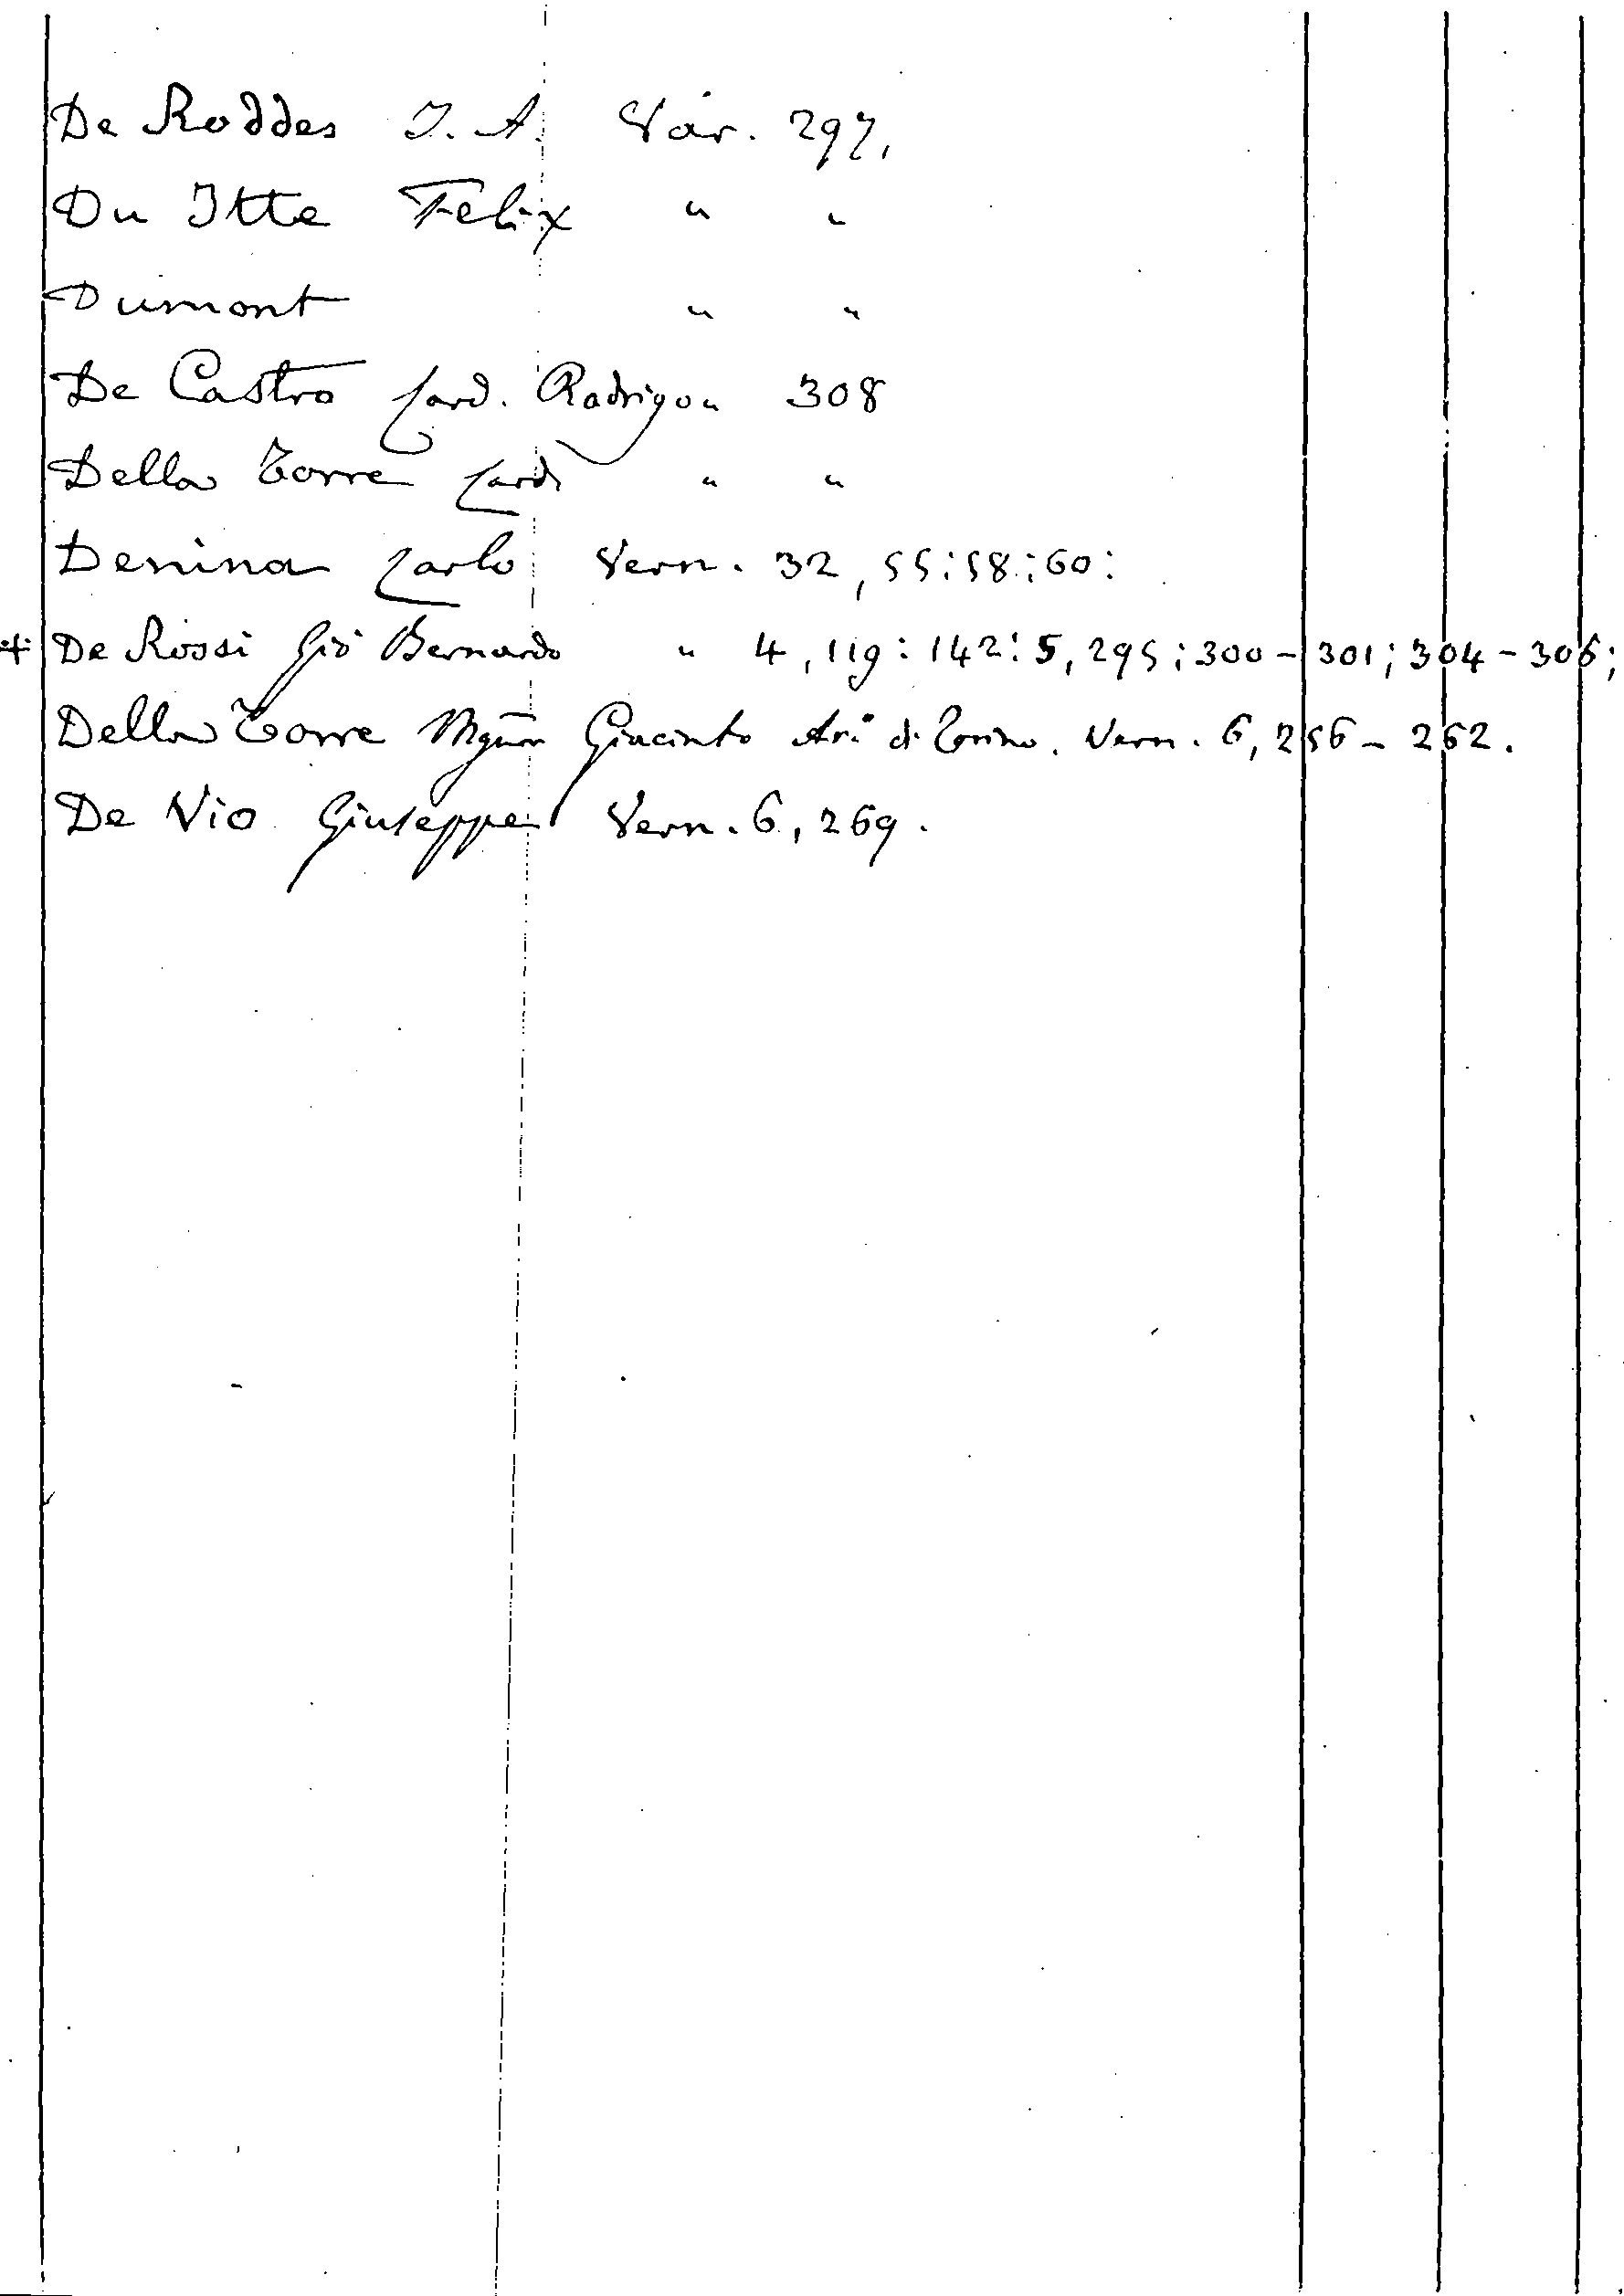 De Roddes J. A. Var. 297,
Du Itte Felix " "
Dumont " "
De Castro Card. Rodrigo " 308
Della Torre Card. " "
Denina Carlo Vern. 32, 55: 58: 60:
+ De Rossi Gio Bernardo " 4, 119: 142: 5, 295; 300-301; 304-306;
Della Torre Mgnr Giacinto di Torino. Vern. 6, 256-262.
De Vio Giuseppe Vern. 6, 269.